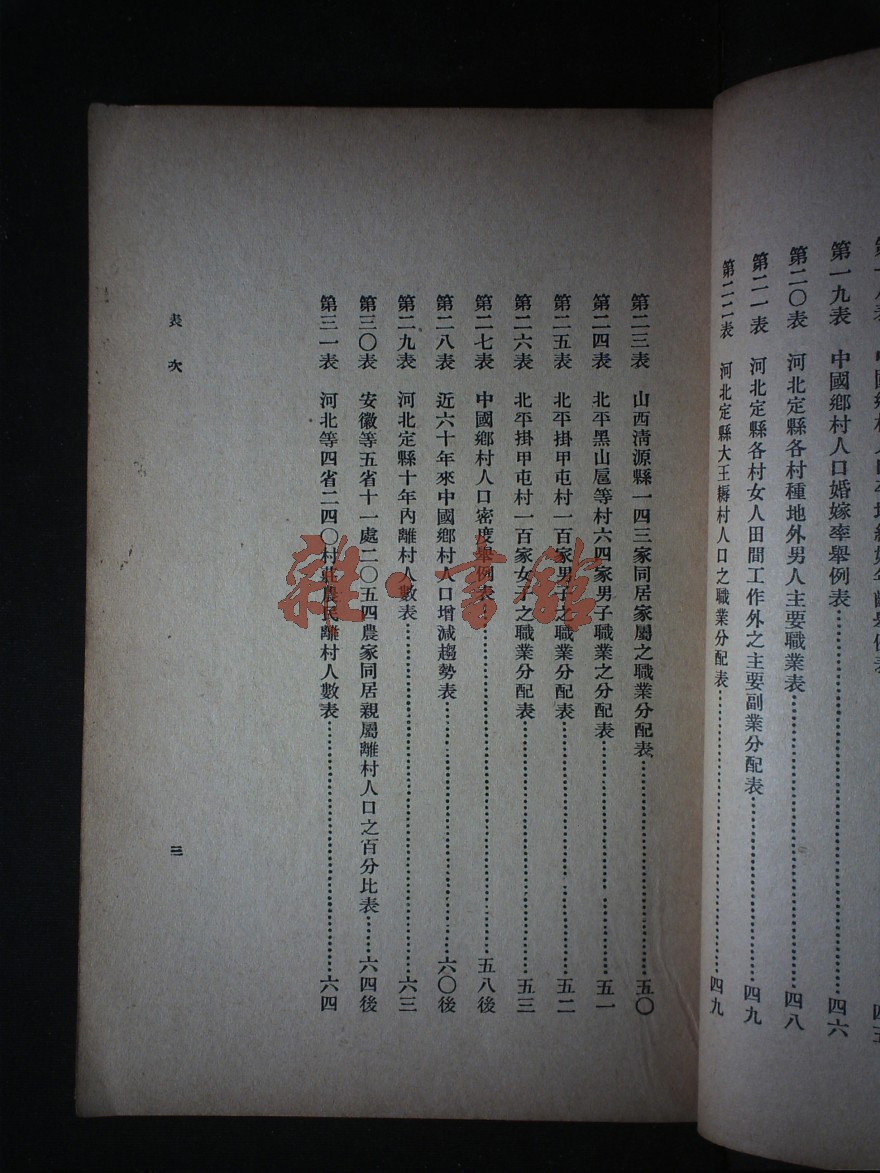 第一九表 中國鄉村人口婚嫁率舉例表……四六
第二〇表 河北定縣各村種地外男人主要職業表……四八
第二一表 河北定縣各村女人田間工作外之主要副業分配表……四九
第二二表 河北定縣大王耨村人口之職業分配表……四九
第二三表 山西淸源縣一四三家同居家屬之職業分配表……五〇
第二四表 北平黑山扈等村六四家男子職業之分配表……五一
第二五表 北平掛甲屯村一百家男子之職業分配表……五二
第二六表 北平掛甲屯村一百家女子之職業分配表……五三
第二七表 中國鄉村人口密度舉例表……五八後
第二八表 近六十年來中國鄉村人口增減趨勢表……六〇後
第二九表 河北定縣十年內離村人數表……六三
第三〇表 安徽等五省十一處二〇五四農家同居親屬離村人口之百分比表……六四後
第三一表 河北等四省二四〇村莊農民離村人數表……六四
表次
三
雜·書館